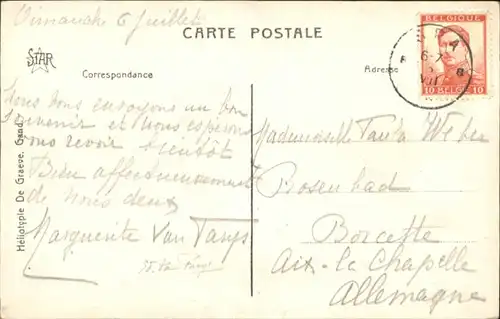 Dimanche 6 Juillet
CARTE POSTALE
STAR
Correspondance
Adresse
BELGIQUE
10 BELGIË 10
Nous vous envoyons un bon
souvenir et nous espérons
vous revoir bientôt
Bien affectueusement
de nous deux
Marguerite Van
Héliotypie De Graeve, Gand.
Mademoiselle Paula Weber
Rosenbad
Borcette
Aix-la Chapelle
Allemagne